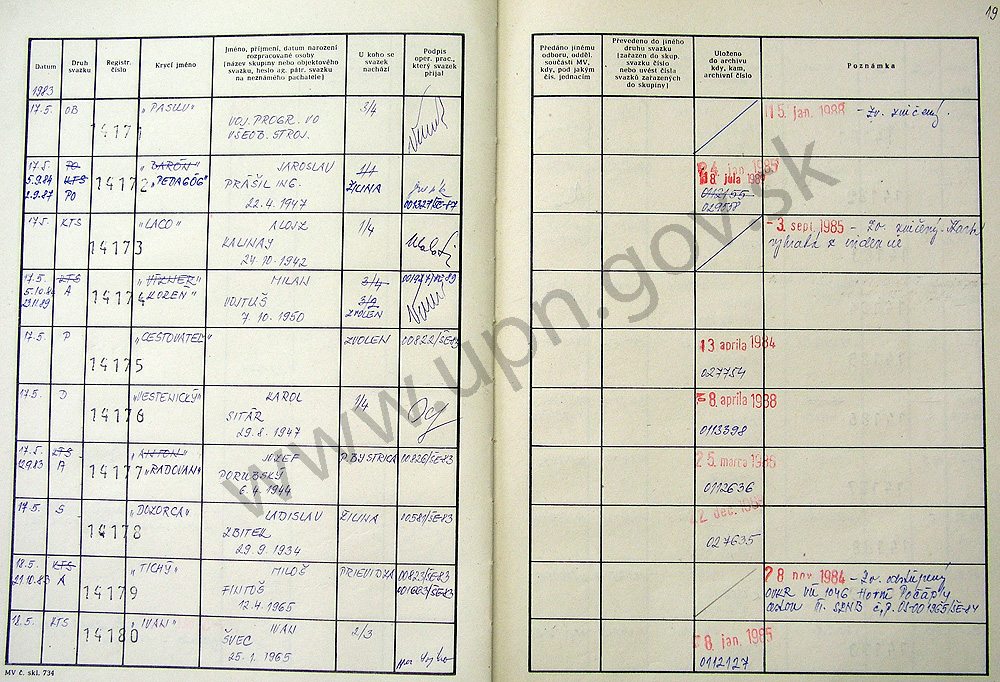 19
Datum
Druh svazku
Registr. číslo
Krycí jméno
Jméno, příjmení, datum narození rozpracované osoby (název skupiny nebo objektového svazku, heslo ag. pátr. svazku na neznámého pachatele)
U koho se svazek nachází
Podpis oper. prac., který svazek přijal
Předáno jinému odboru, odděl. součásti MV, kdy, pod jakým čís. jednacím
Převedeno do jiného druhu svazku (zařazen do skup. svazku číslo nebo uvést čísla svazků zařazených do skupiny)
Uloženo do archivu kdy, kam, archivní číslo
Poznámka
1983
17.5. OB 14171 „PASUĽU" VOJ. PROGR. VO 3/4
VŠEOB. STROJ.
15. jan. 1988 - Zv. zničený.
17.5. PO 14172 „BARÓN" JAROSLAV 1/1
5.9.84 KTS „PEDAGÓG" PRÁŠIL ING. ŽILINA
2.9.87 PO 22.4.1947
18. júla
0112155
17.5. KTS 14173 „LACO" ALOJZ 1/4
KALINAY
24.10.1942
- 3. sept. 1985 - Zv. zničený.
17.5. KTS 14174 MILAN 3/4
5.10.84 A „KOREN" VOJTUŠ 3/2
23.11.89 7.10.1950 ZVOLEN
17.5. P 14175 „CESTOVATEĽ" ZVOLEN 00822/ŠE-83
13. apríla 1984
027754
17.5. D 14176 „VESTENICKÝ" KAROL 1/4
SITÁR
29.8.1947
8. apríla 1988
0113398
17.5. KTS 14177 „ANTON" JOZEF P. BYSTRICA 00826/ŠE-83
12.9.83 A „RADOVAN" PORUBSKÝ
6.4.1944
25. marca 1985
0112636
17.5. S 14178 „DOZORCA" LADISLAV ŽILINA 10581/ŠE-83
ZBITEK
29.9.1934
2. dec.
027635
18.5. KTS 14179 „TICHÝ" MILOŠ PRIEVIDZA 00823/ŠE-83
21.10.83 A FINTOŠ 001663/ŠE-83
12.4.1965
28. nov. 1984 - Zv. odstúpený
OVKR VÚ 1046 Horní Počáply
18.5. KTS 14180 „IVAN" IVAN 2/3
ŠVEC
25.1.1965
8. jan. 1985
0112127
MV č. skl. 734
www.upn.gov.sk